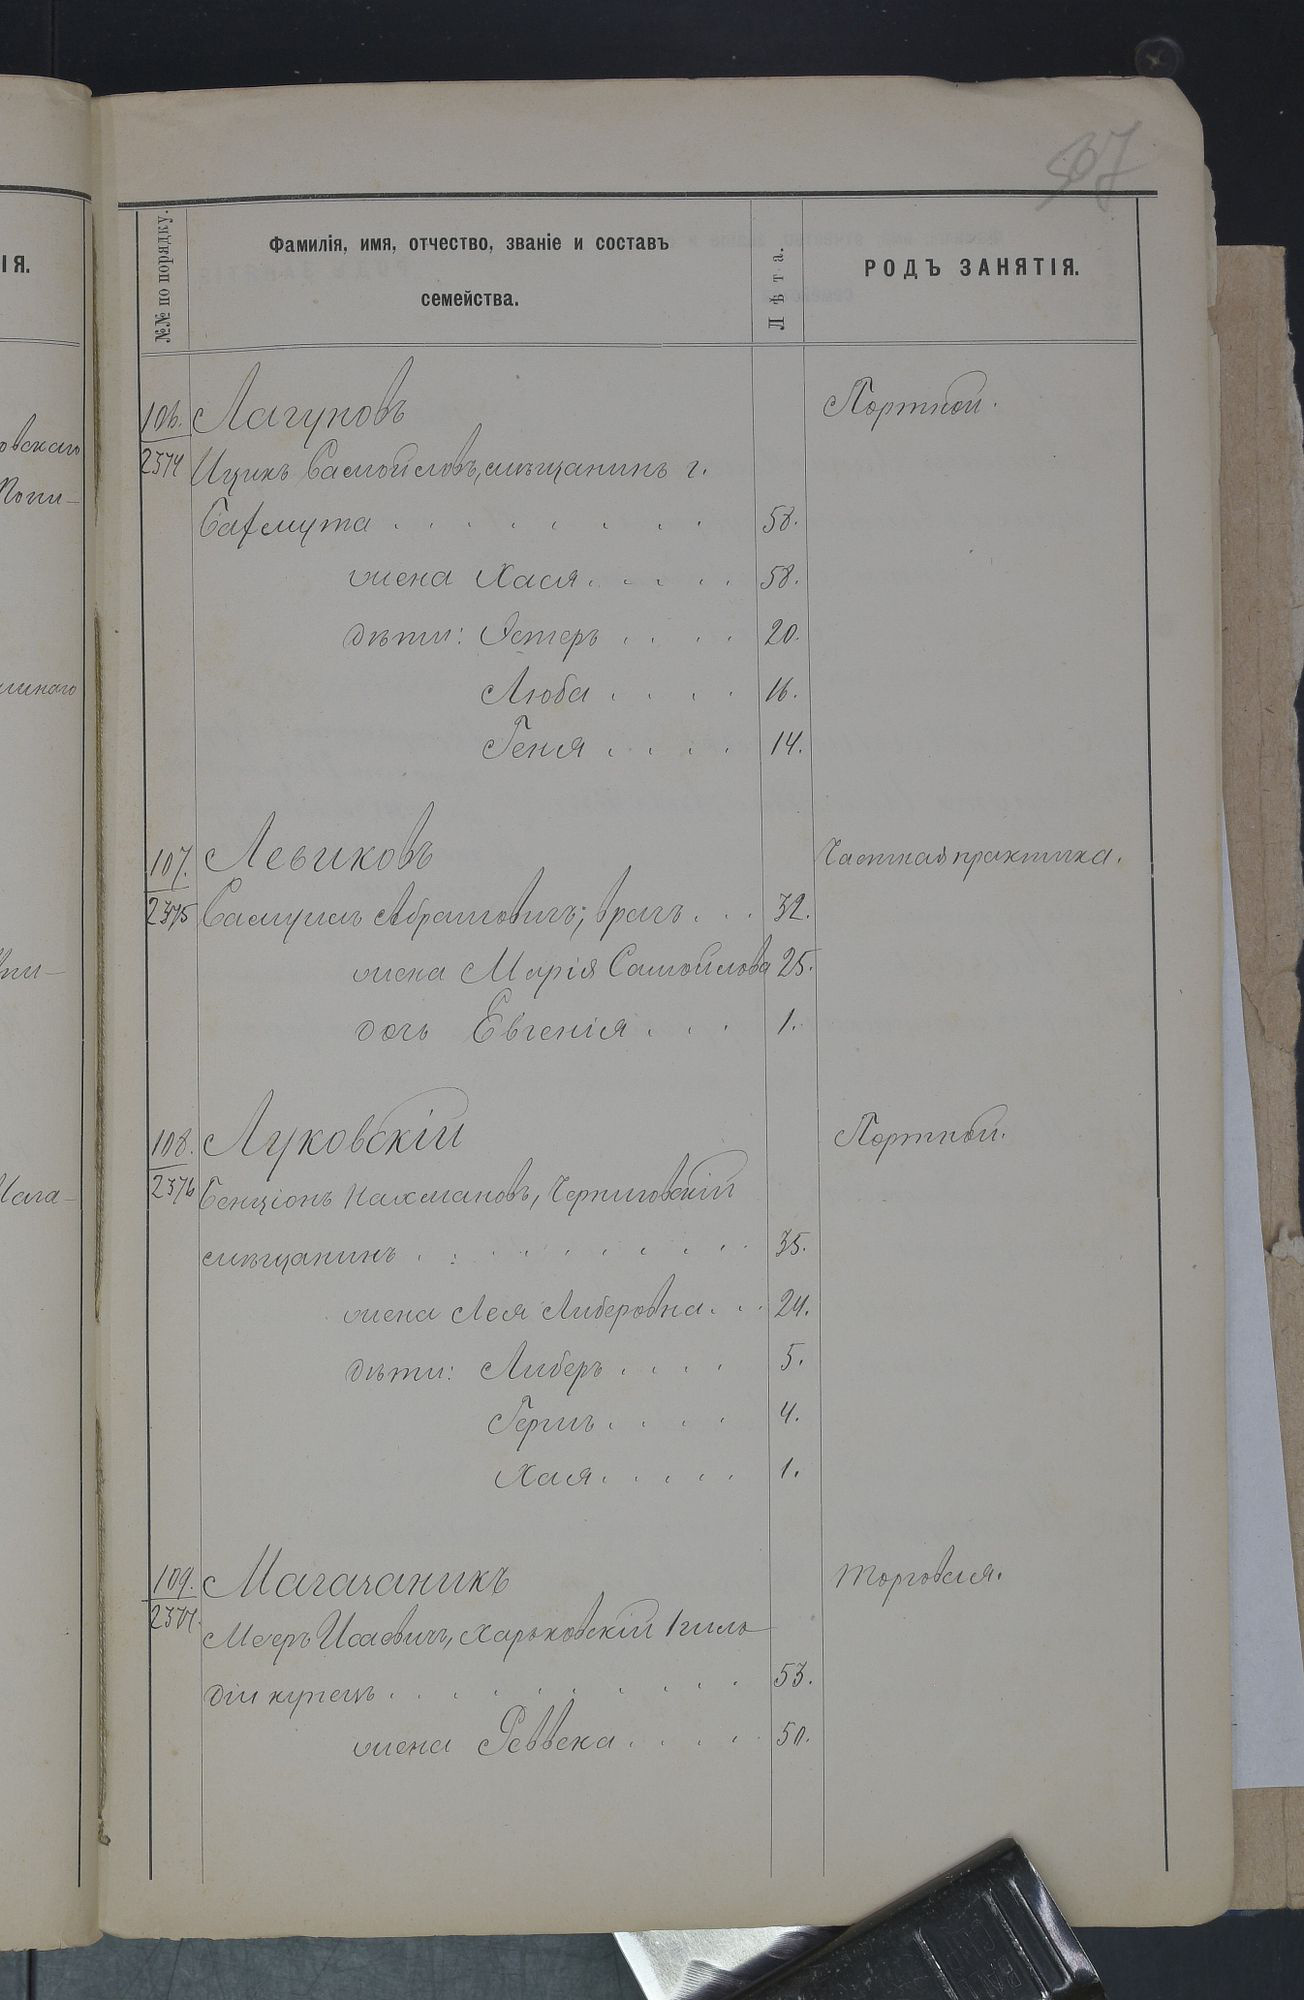 507
№№ по порядку.
Фамилія, имя, отчество, званіе и составъ
семейства.
Лѣта.
РОДЪ ЗАНЯТІЯ.
ІЯ.
овскаго
Попи-
106. Лагуновъ Портной.
2374 Ицикъ Самойловъ, мѣщанинъ г.
Бахмута . . . . . . . . 58.
жена Хася . . . . . 58.
дѣти: Эстеръ . . . . 20.
Люба . . . . 16.
Геня . . . . 14.
107. Левиковъ Частная практика.
2375 Самуилъ Абрамовичъ, врачъ . . . 32.
жена Марія Самойлова 25.
дочь Евгенія . . . 1.
108. Луковскій Портной.
2376 Бенціонъ Нахмановъ, Черниговскій
мѣщанинъ . . . . . . . . . 35.
жена Лея Либеровна . . . 24.
дѣти: Либеръ . . . . 5.
Гершъ . . . . 4.
Хая . . . . . 1.
109. Магачаникъ Торговля.
Мееръ Исаевичъ, Харьковскій 1 гиль
діи купецъ . . . . . . . . . . 53.
жена Ревека . . . . . 50.